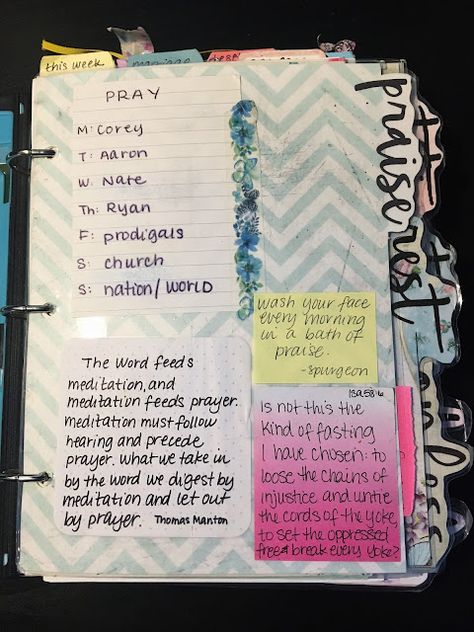 this week
marriage
PRAY
M: Corey
T: Aaron
W: Nate
Th: Ryan
F: prodigals
S: church
S: nation/WORLD
wash your face
every morning
in a bath of
praise.
-Spurgeon
The Word feeds
meditation, and
meditation feeds prayer.
meditation must follow
hearing and precede
prayer. What we take in
by the word we digest by
meditation and let out
by prayer. Thomas Manton
Isa 58:6
Is not this the
kind of fasting
I have chosen: to
loose the chains of
injustice and untie
the cords of the yoke,
to set the oppressed
free & break every yoke?
praise
rest